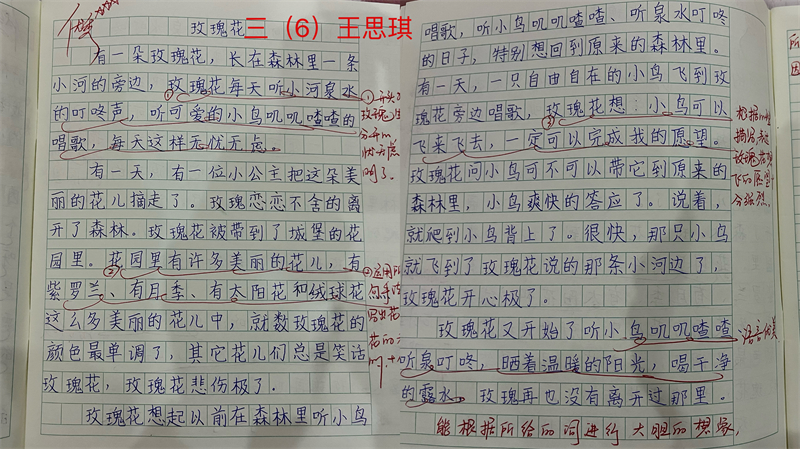 优
玫瑰花
三（6）王思琪
有一朵玫瑰花，长在森林里一条
小河的旁边，玫瑰花每天听小河泉水
的叮咚声，听可爱的小鸟叽叽喳喳的
唱歌，每天这样无忧无虑。
有一天，有一位小公主把这朵美
丽的花儿摘走了。玫瑰恋恋不舍的离
开了森林。玫瑰花被带到了城堡的花
园里。花园里有许多美丽的花儿，有
紫罗兰、有月季、有太阳花和绒球花
这么多美丽的花儿中，就数玫瑰花的
颜色最单调了，其它花儿们总是笑话
玫瑰花，玫瑰花悲伤极了。
玫瑰花想起以前在森林里听小鸟
唱歌，听小鸟叽叽喳喳、听泉水叮咚
的日子，特别想回到原来的森林里。
有一天，一只自由自在的小鸟飞到玫
瑰花旁边唱歌，玫瑰花想：小鸟可以
飞来飞去，一定可以完成我的愿望。
玫瑰花问小鸟可不可以带它到原来的
森林里，小鸟爽快的答应了。说着，
就爬到小鸟背上了。很快，那只小鸟
就飞到了玫瑰花说的那条小河边了，
玫瑰花开心极了。
玫瑰花又开始了听小鸟叽叽喳喳
听泉叮咚，晒着温暖的阳光，喝干净
的露水。玫瑰再也没有离开过那里。
能根据所给的词进行大胆的想象，